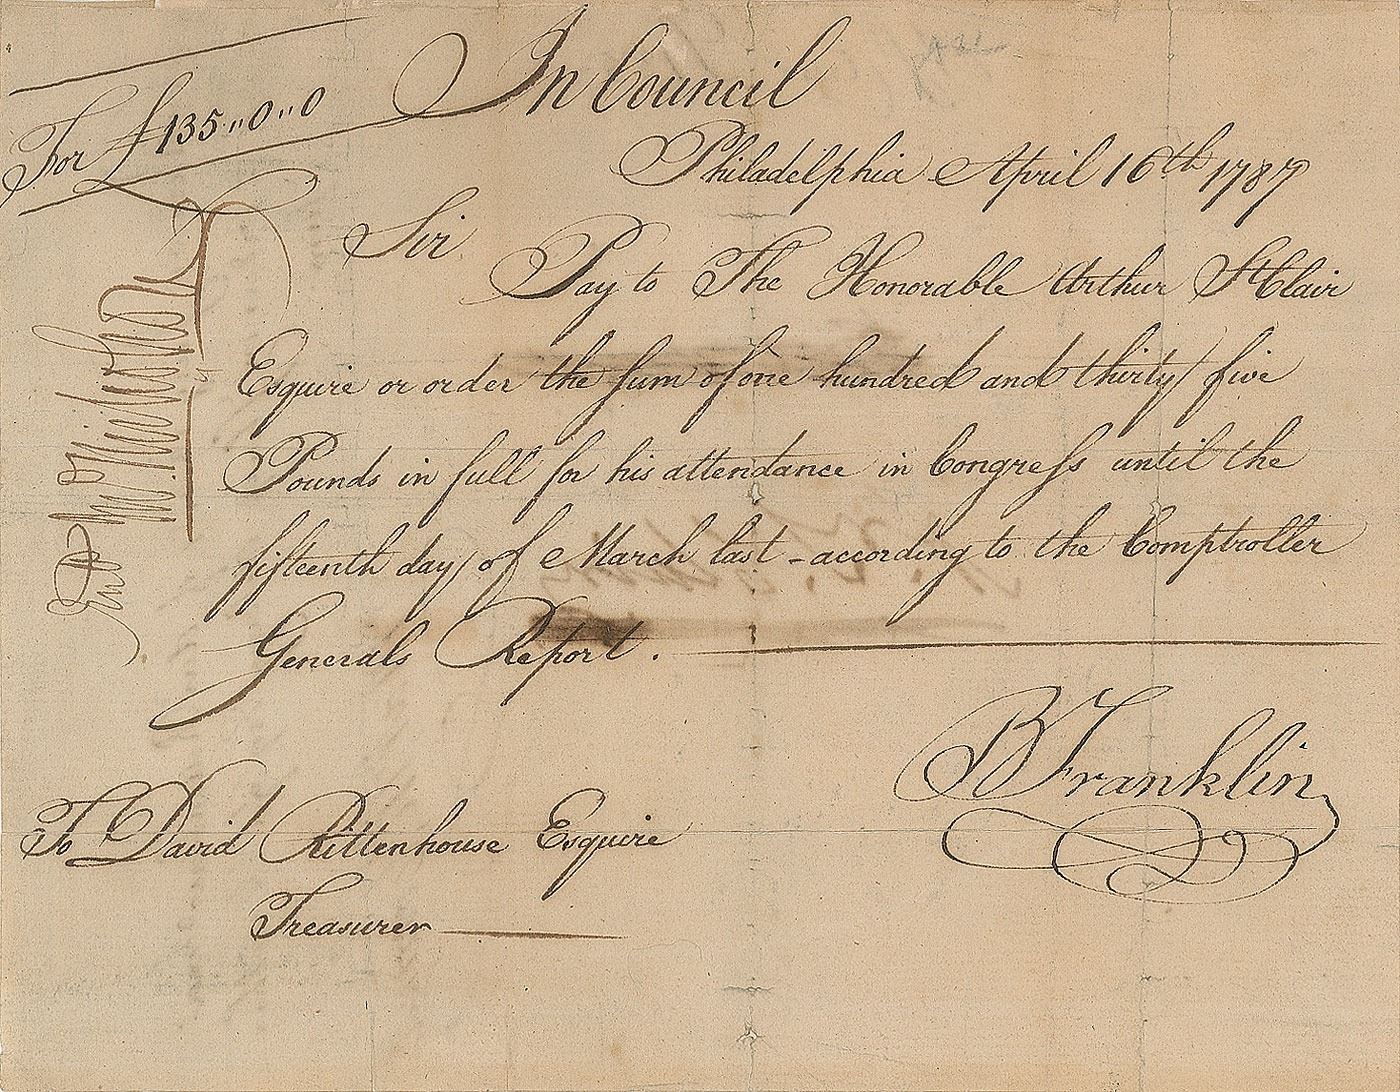 In Council
For £135"0"0
Philadelphia April 16th 1787
Sir
Pay to The Honorable Arthur St Clair
Esquire or order the sum of one hundred and thirty five
Pounds in full for his attendance in Congress until the
fifteenth day of March last according to the Comptroller
Generals Report.
B Franklin
To David Rittenhouse Esquire
Treasurer